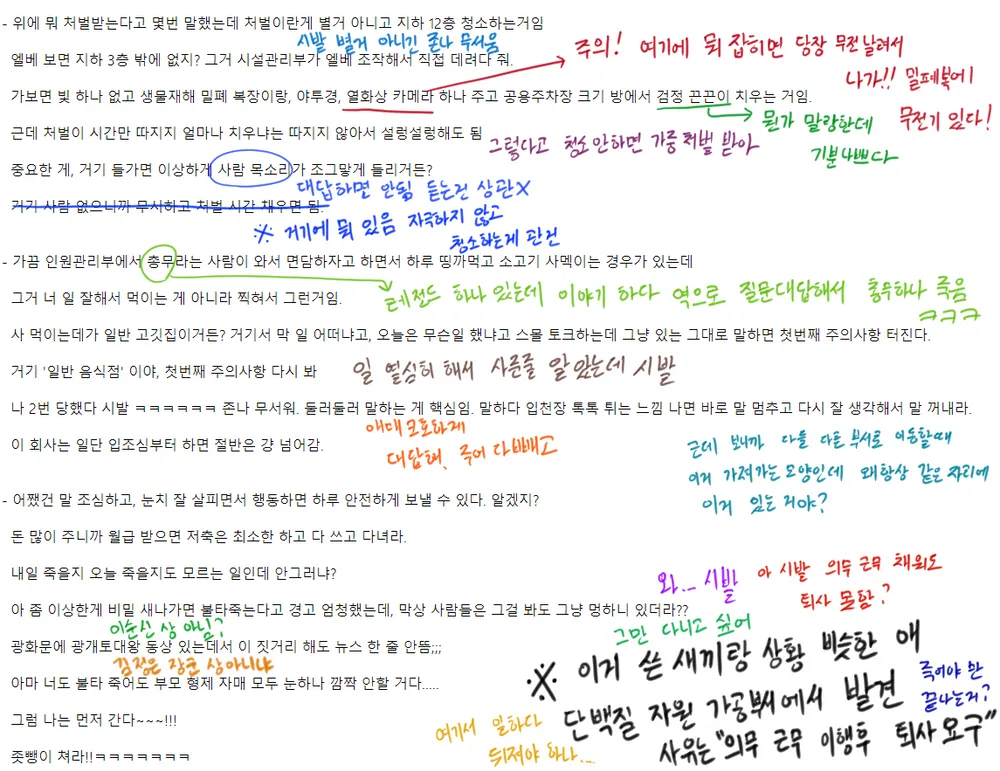 - 위에 뭐 처벌받는다고 몇번 말했는데 처벌이란게 별거 아니고 지하 12층 청소하는거임
시발 별거 아니긴 존나 무서움
엘베 보면 지하 3층 밖에 없지? 그거 시설관리부가 엘베 조작해서 직접 데려다 줘.
주의! 여기에 뭐 잡히면 당장 무전 날려서
나가!! 밀폐복에
무전기 있다!
가보면 빛 하나 없고 생물재해 밀폐 복장이랑, 야투경, 열화상 카메라 하나 주고 공용주차장 크기 방에서 검정 끈끈이 치우는 거임.
뭔가 말랑한데
기분나쁘다
근데 처벌이 시간만 따지지 얼마나 치우냐는 따지지 않아서 설렁설렁해도 됨
그렇다고 청소 안하면 가중 처벌 받아
중요한 게, 거기 들가면 이상하게 사람 목소리가 조그맣게 들리거든?
대답하면 안됨 듣는건 상관X
거기 사람 없으니까 무시하고 처벌 시간 채우면 됨.
※ 거기에 뭐 있음 자극하지 않고
청소하는게 관건
- 가끔 인원관리부에서 총무라는 사람이 와서 면담하자고 하면서 하루 띵까먹고 소고기 사멕이는 경우가 있는데
그거 너 일 잘해서 먹이는 게 아니라 찍혀서 그런거임.
레전드 하나 있는데 이야기 하다 역으로 질문대답해서 총무하나 죽음
ㅋㅋㅋ
사 먹이는데가 일반 고깃집이거든? 거기서 막 일 어떠냐고, 오늘은 무슨일 했냐고 스몰 토크하는데 그냥 있는 그대로 말하면 첫번째 주의사항 터진다.
거기 '일반 음식점' 이야, 첫번째 주의사항 다시 봐
일 열심히 해서 사준줄 알았는데 시발
나 2번 당했다 시발 ㅋㅋㅋㅋㅋㅋ 존나 무서워. 둘러둘러 말하는 게 핵심임. 말하다 입천장 톡톡 튀는 느낌 나면 바로 말 멈추고 다시 잘 생각해서 말 꺼내라.
애매모호하게
대답해, 주어 다 빼고
이 회사는 일단 입조심부터 하면 절반은 걍 넘어감.
근데 보니까 다들 다른 부서로 이동할때
이거 가져가는 모양인데 왜 항상 같은 자리에
이거 있는 거야?
- 어쨌건 말 조심하고, 눈치 잘 살피면서 행동하면 하루 안전하게 보낼 수 있다. 알겠지?
돈 많이 주니까 월급 받으면 저축은 최소한 하고 다 쓰고 다녀라.
내일 죽을지 오늘 죽을지도 모르는 일인데 안그러냐?
와... 시발
아 시발 의무 근무 채워도
퇴사 못함?
아 좀 이상한게 비밀 새나가면 불타죽는다고 경고 엄청했는데, 막상 사람들은 그걸 봐도 그냥 멍하니 있더라??
이순신 상 아님?
그만 다니고 싶어
광화문에 광개토대왕 동상 있는데서 이 짓거리 해도 뉴스 한 줄 안뜸;;;
김정은 장군 상아니냐
※ 이거 쓴 새끼랑 상황 비슷한 애
단백질 자원 가공부서에서 발견
사유는 "의무 근무 이행후 퇴사 요구"
죽어야 만
끝나는거?
아마 너도 불타 죽어도 부모 형제 자매 모두 눈하나 깜짝 안할 거다.....
그럼 나는 먼저 간다~~~!!!
여기서 일하다
뒤져야 하나...
좃뺑이 쳐라!!ㅋㅋㅋㅋㅋㅋㅋ